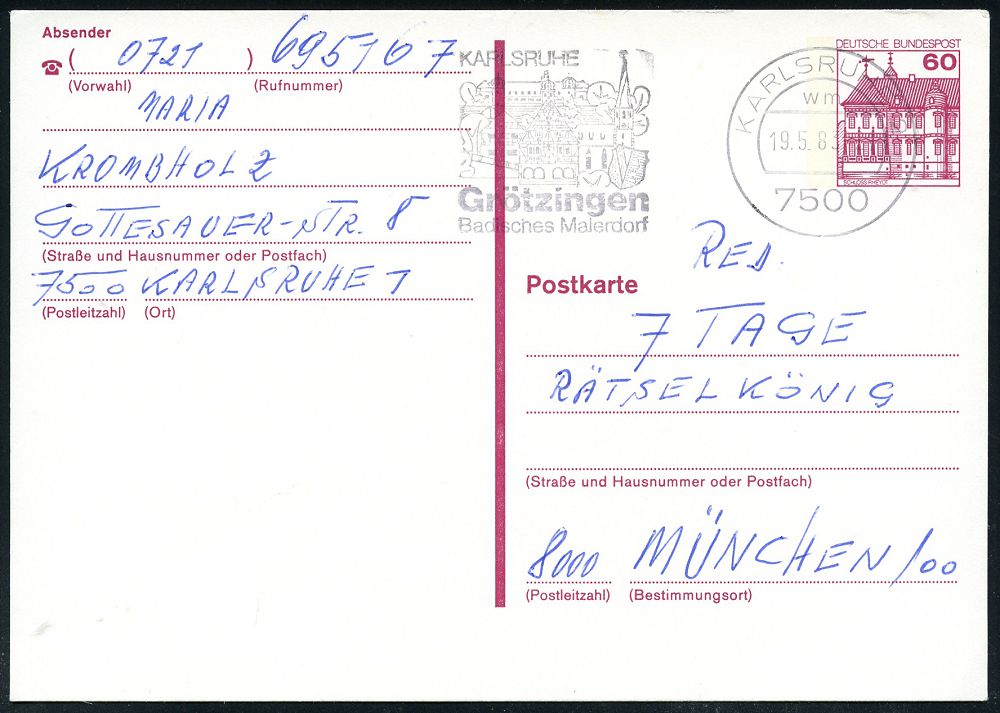 Absender
( 0721 ) 695167
(Vorwahl) (Rufnummer)
MARIA
KROMBHOLZ
GOTTESAUER-STR. 8
(Straße und Hausnummer oder Postfach)
7500 KARLSRUHE 1
(Postleitzahl) (Ort)
KARLSRUHE
Grötzingen
Badisches Malerdorf
KARLSRU
wm
19.5.83
7500
DEUTSCHE BUNDESPOST
60
SCHLOSS RHEYDT
RED.
Postkarte
7 TAGE
RÄTSELKÖNIG
(Straße und Hausnummer oder Postfach)
8000 MÜNCHEN/00
(Postleitzahl) (Bestimmungsort)